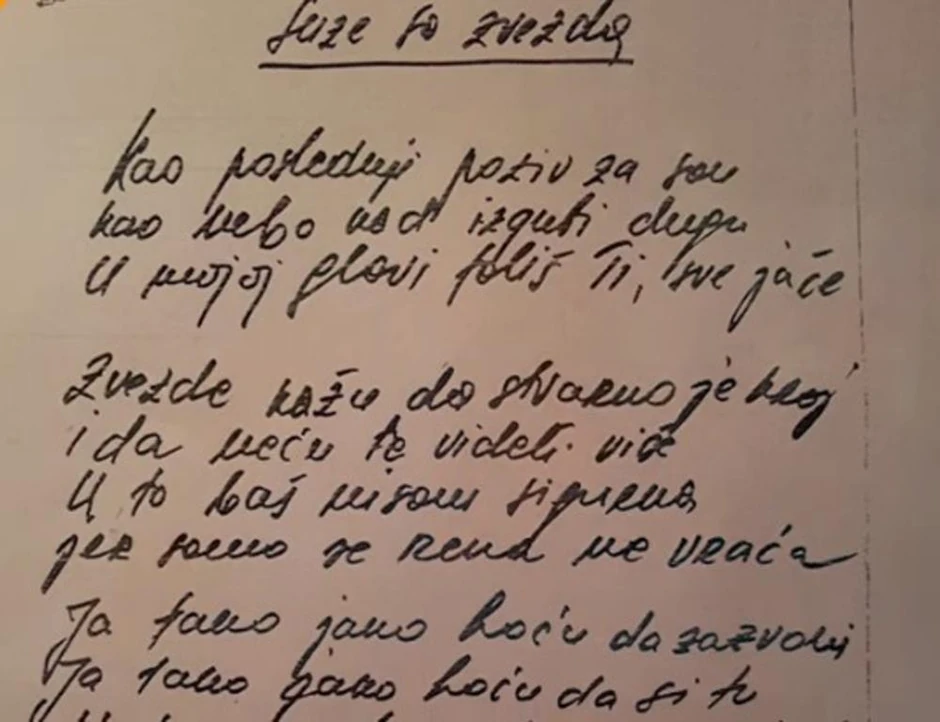 Suze so zvezda
Kao poslednji poziv za son
kao nebo kad izgubi dugu
U mojoj glavi foliš Ti, sve jače
Zvezde kažu da stvarno je kraj
i da neću te videti više
U to baš nisam sigurna
jer samo se reka ne vraća
Ja tako jako hoću da zazvoni
Ja tako jako hoću da si tu